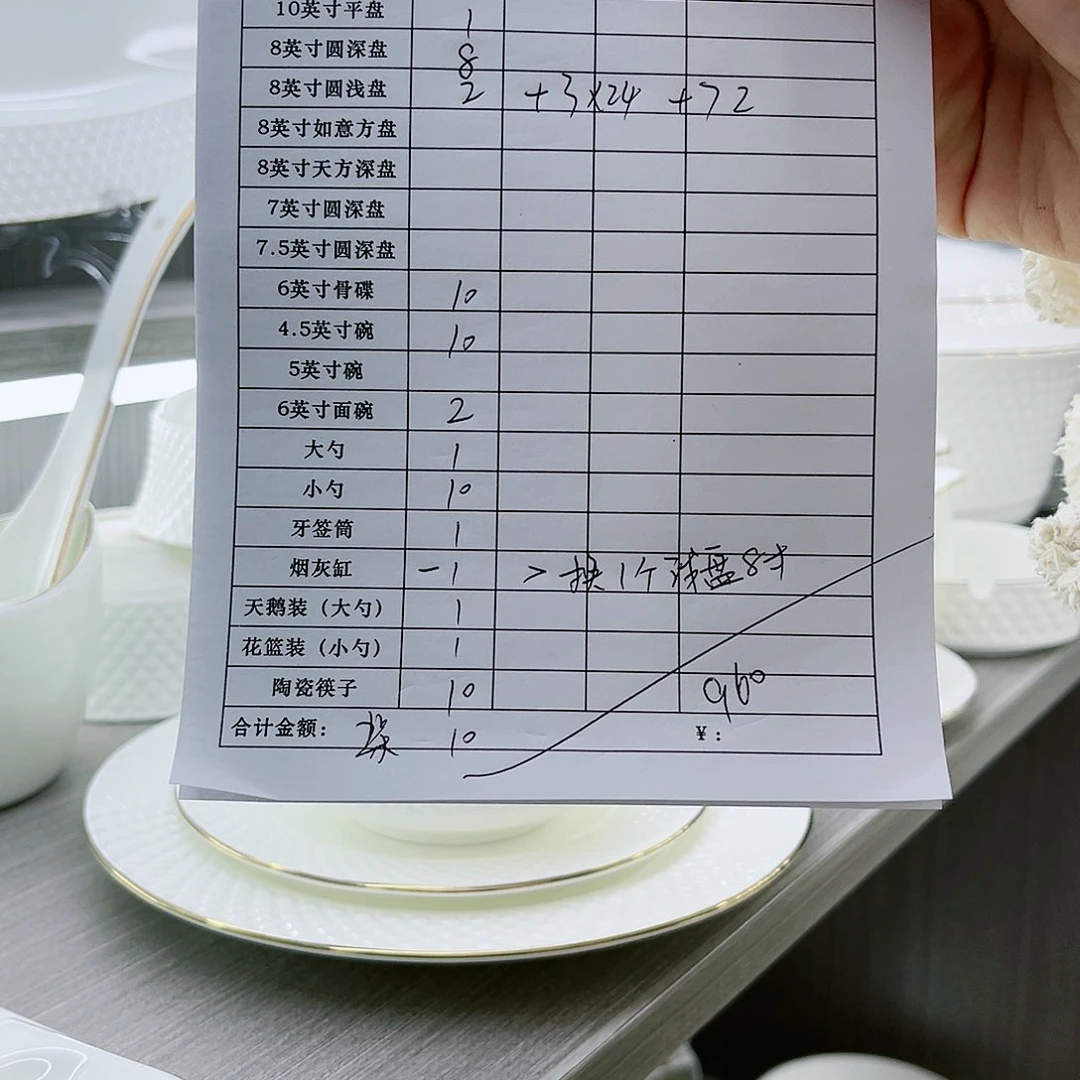 10英寸平盘 1
8英寸圆深盘 8
8英寸圆浅盘 2 +3×24 +72
8英寸如意方盘
8英寸天方深盘
7英寸圆深盘
7.5英寸圆深盘
6英寸骨碟 10
4.5英寸碗 10
5英寸碗
6英寸面碗 2
大勺 1
小勺 10
牙签筒 1
烟灰缸 -1 > 换1个 盘8寸
天鹅装（大勺） 1
花篮装（小勺） 1
陶瓷筷子 10 960
合计金额： 10 ¥：